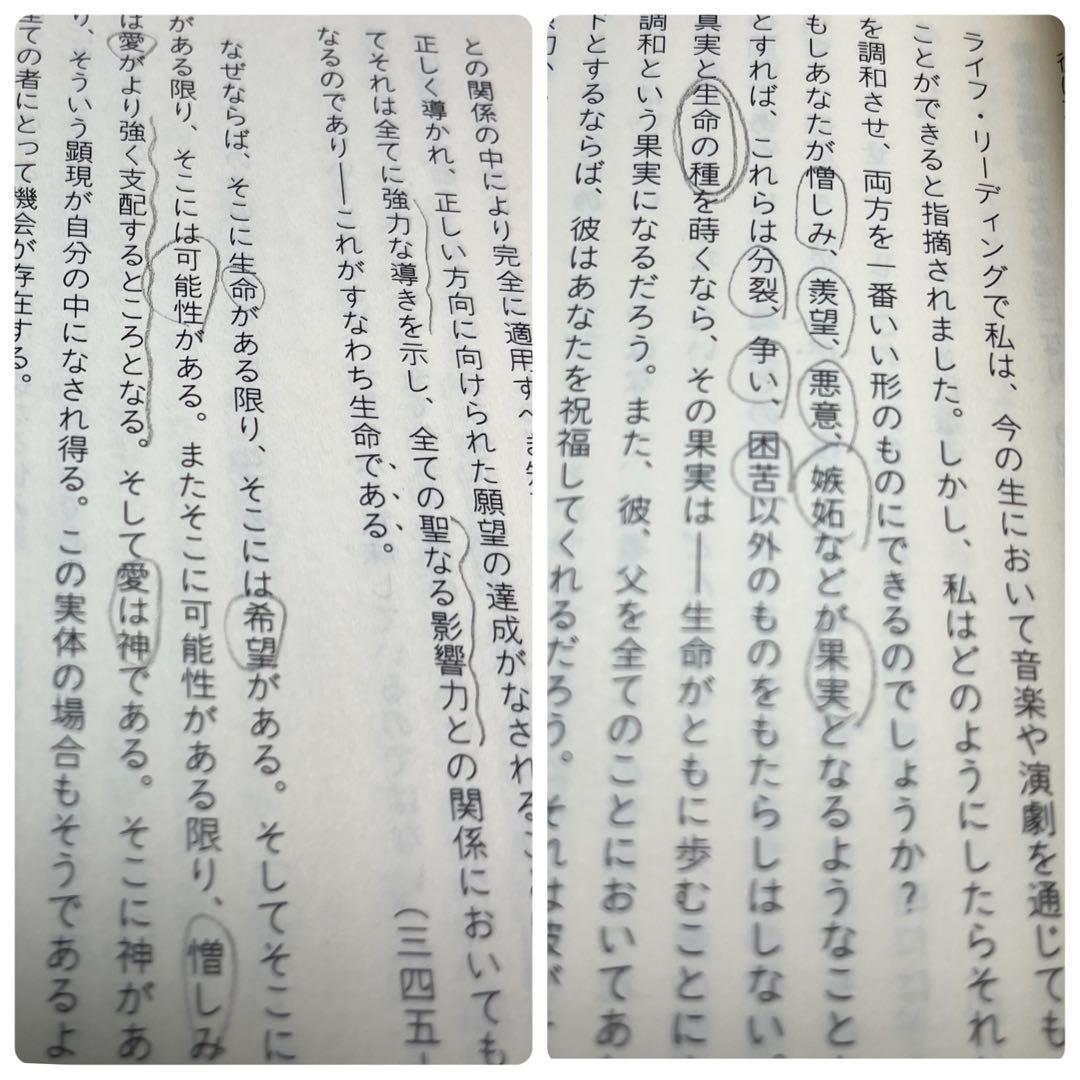 との関係の中により完全に適用すべき
正しく導かれ、正しい方向に向けられた願望の達成がなされるこ
てそれは全てに強力な導きを示し、全ての聖なる影響力との関係においても
なるのであり――これがすなわち生命である。
(三四五
なぜならば、そこに生命がある限り、そこには希望がある。そしてそこに
がある限り、そこには可能性がある。またそこに可能性がある限り、憎しみ
は愛がより強く支配するところとなる。そして愛は神である。そこに神があ
り、そういう顕現が自分の中になされ得る。この実体の場合もそうであるよ
全ての者にとって機会が存在する。
ライフ・リーディングで私は、今の生において音楽や演劇を通じても
ことができると指摘されました。しかし、私はどのようにしたらそれ
を調和させ、両方を一番いい形のものにできるのでしょうか?
もしあなたが憎しみ、羨望、悪意、嫉妬などが果実となるようなこと
とすれば、これらは分裂、争い、困苦以外のものをもたらしはしない。
真実と生命の種を蒔くなら、その果実は――生命がともに歩むことに
調和という果実になるだろう。また、彼、父を全てのことにおいてあ
ドとするならば、彼はあなたを祝福してくれるだろう。それは彼が